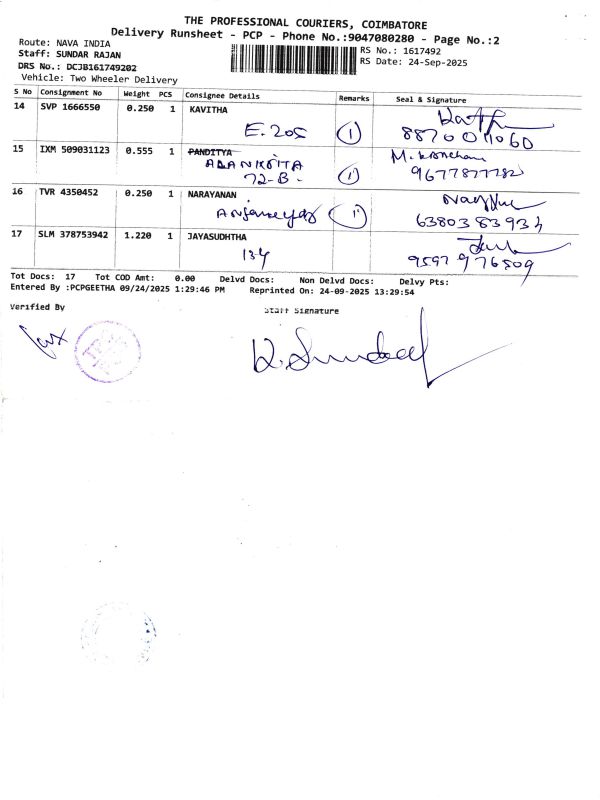 THE PROFESSIONAL COURIERS, COIMBATORE
Delivery Runsheet - PCP - Phone No.:9047080280 - Page No.:2
Route: NAVA INDIA
Staff: SUNDAR RAJAN
DRS No.: DCJB161749202
Vehicle: Two Wheeler Delivery
RS No.: 1617492
RS Date: 24-Sep-2025
S No Consignment No Weight PCS Consignee Details Remarks Seal & Signature
14 SVP 1666550 0.250 1 KAVITHA
E.205 1 8870011060
15 IXM 509031123 0.555 1 PANDITYA
72-B. 1 9677877782
16 TVR 4350452 0.250 1 NARAYANAN
1 6380383934
17 SLM 378753942 1.220 1 JAYASUDHTHA
134 9597976509
Tot Docs: 17 Tot COD Amt: 0.00 Delvd Docs: Non Delvd Docs: Delvy Pts:
Entered By :PCPGEETHA 09/24/2025 1:29:46 PM Reprinted On: 24-09-2025 13:29:54
Verified By Staff Signature